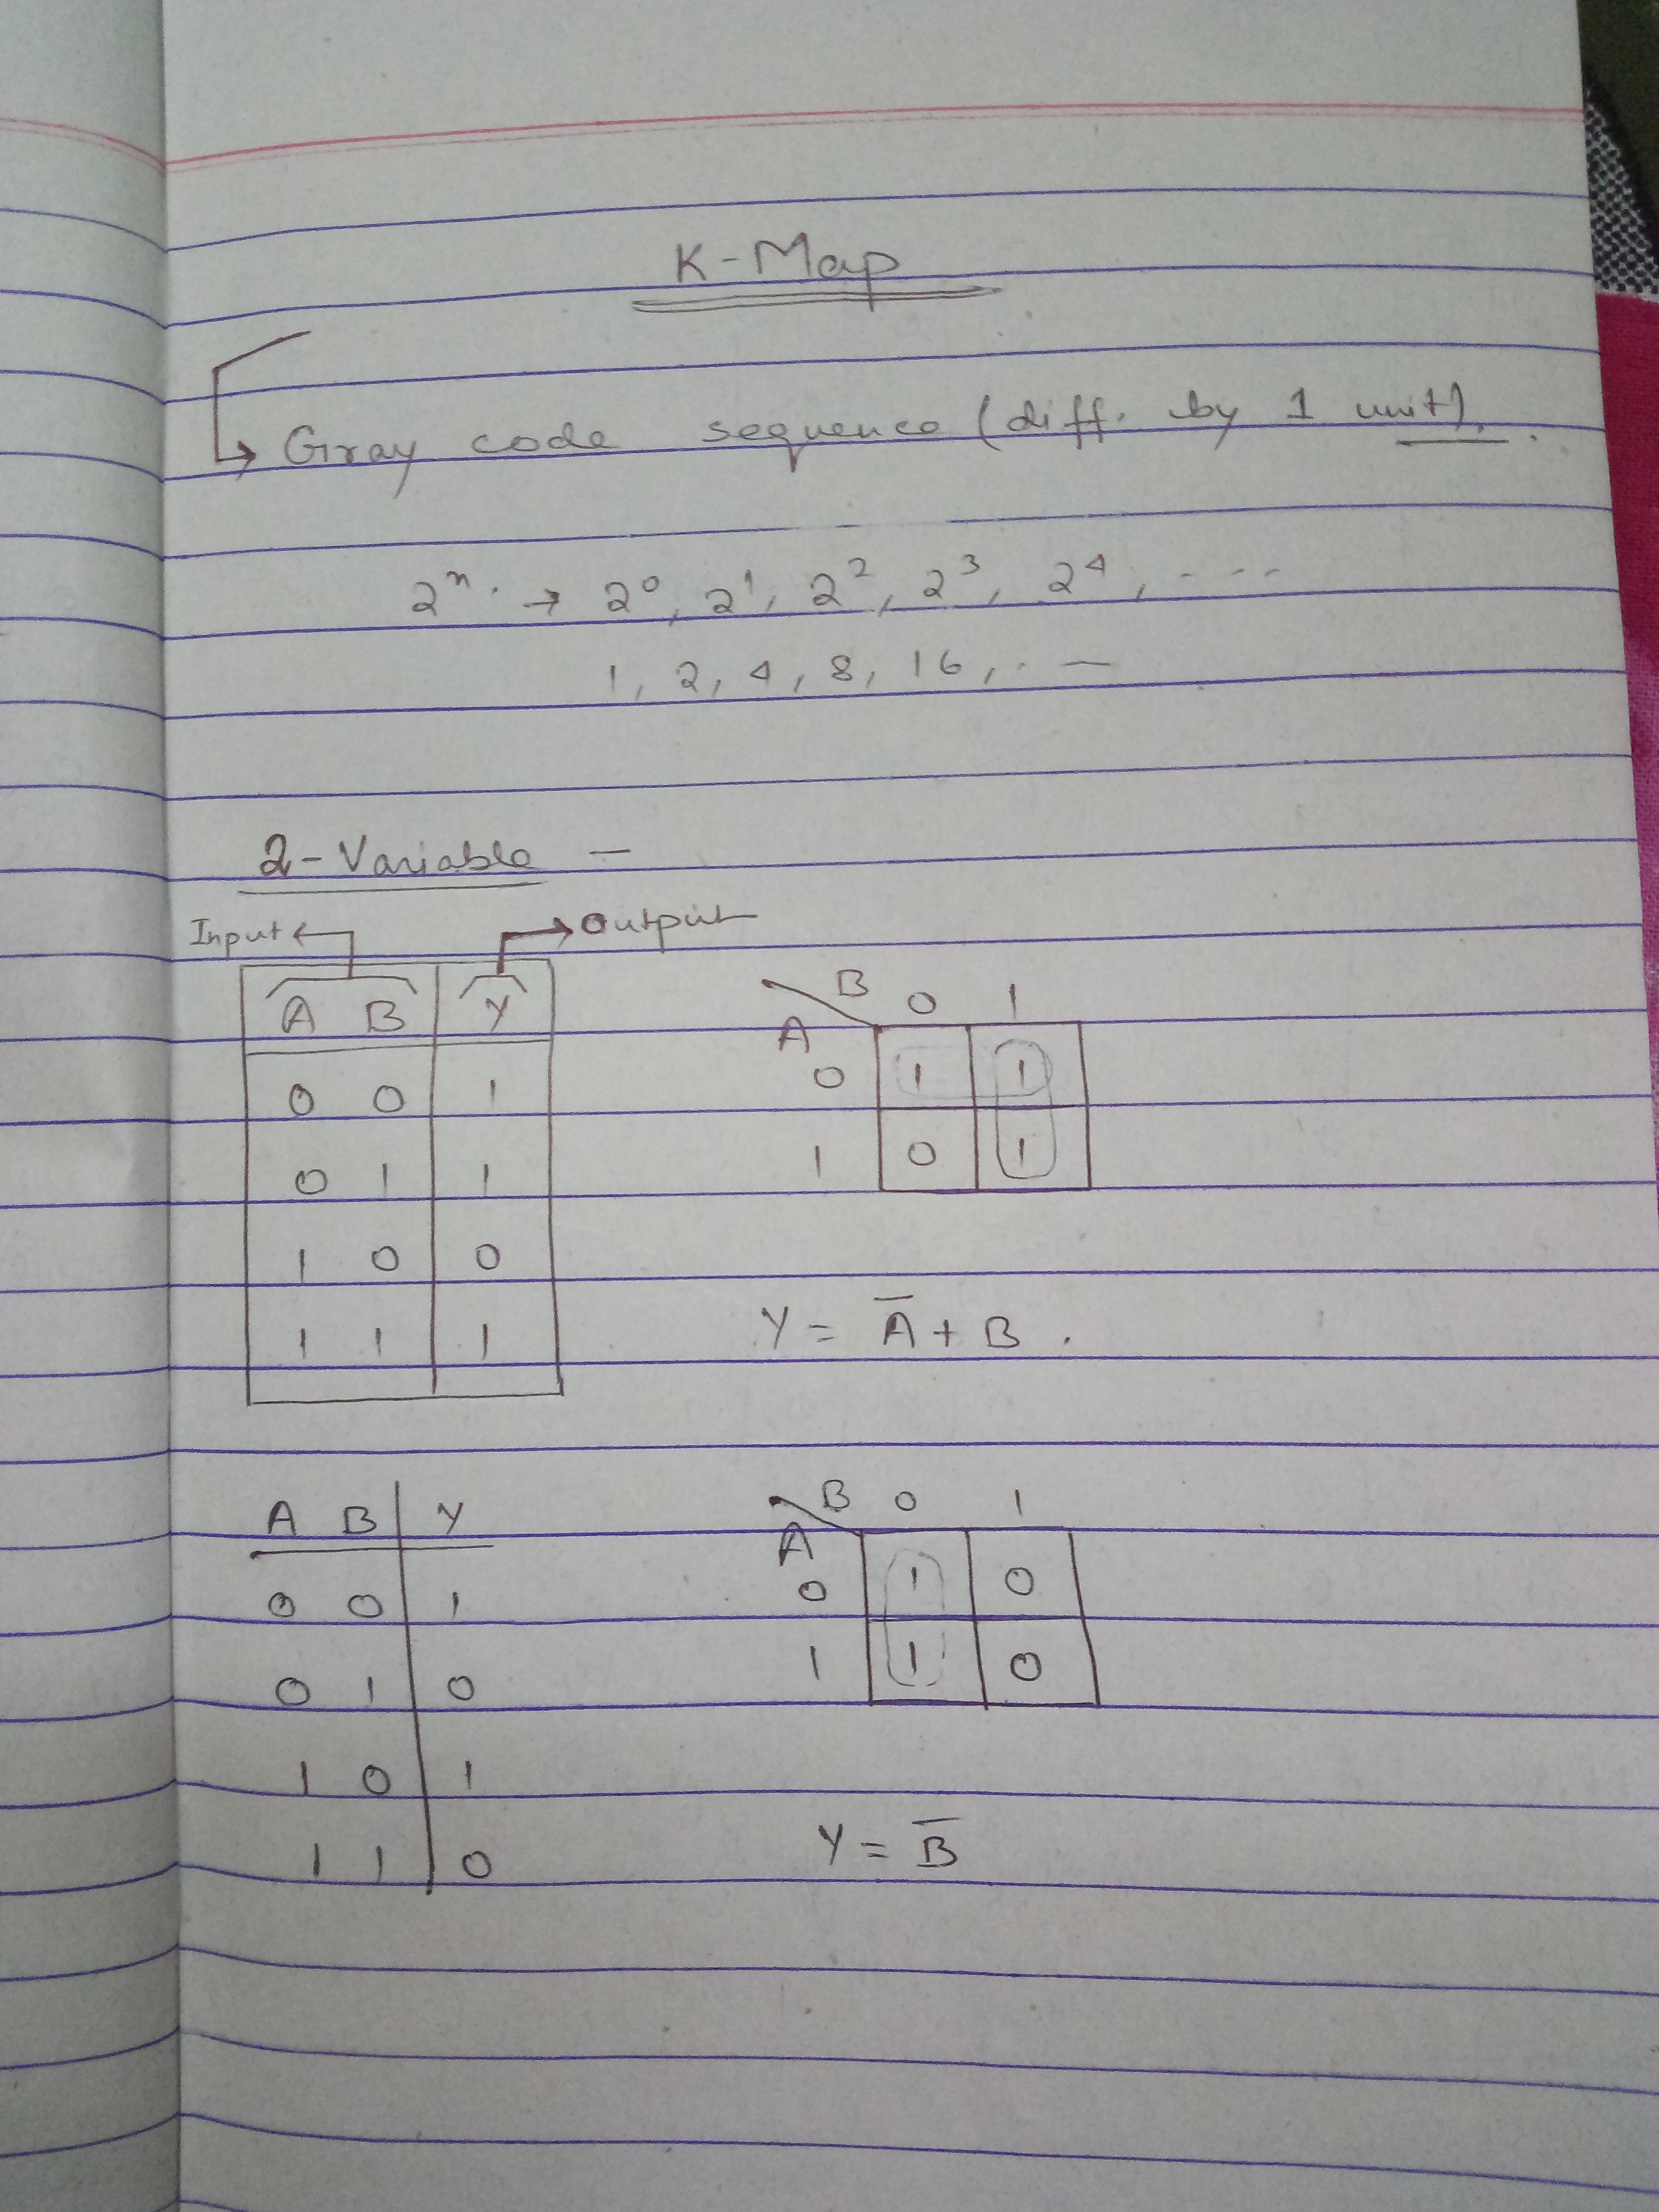 K-Map
→ Gray code sequence (diff. by 1 unit).
2ⁿ. → 2⁰, 2¹, 2², 2³, 2⁴, . - - -
1, 2, 4, 8, 16, . —
2-Variable —
Input ← → Output
A B Y
0 0 1
0 1 1
1 0 0
1 1 1
B 0 1
A
0 1 1
1 0 1
Y = A̅ + B .
A B Y
0 0 1
0 1 0
1 0 1
1 1 0
B 0 1
A
0 1 0
1 1 0
Y = B̅